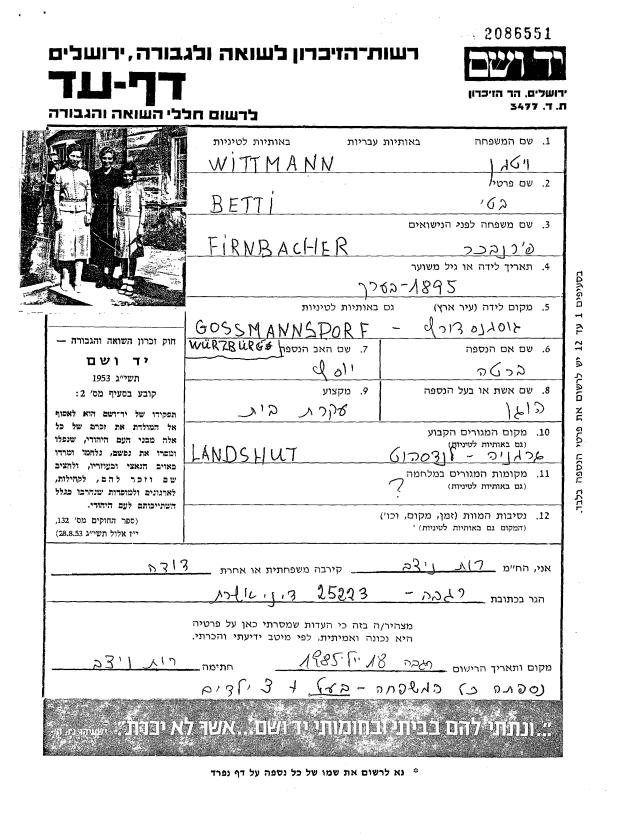 2086551
יד ושם
רשות-הזיכרון לשואה ולגבורה, ירושלים
דף-עד
לרשום חללי השואה והגבורה
ירושלים, הר הזיכרון
ת. ד. 3477
1. שם המשפחה באותיות עבריות באותיות לטיניות
ויטמן WITTMANN
2. שם פרטי
בטי BETTI
3. שם משפחה לפני הנישואים
פירנבכר FIRNBACHER
4. תאריך לידה או גיל משוער
1895-בערך
5. מקום לידה (עיר ארץ) גם באותיות לטיניות
גוסמנסדורף - GOSSMANNSPORF
WÜRZBURG
6. שם אם הנספה
ברטה
7. שם האב הנספה
יוסף
8. שם אשת או בעל הנספה
הוגו
9. מקצוע
עקרת בית
10. מקום המגורים הקבוע
(גם באותיות לטיניות)
גרמניה - לנדסהוט LANDSHUT
11. מקומות המגורים במלחמה
(גם באותיות לטיניות)
?
12. נסיבות המוות (זמן, מקום, וכו')
(המקום גם באותיות לטיניות)
חוק זכרון השואה והגבורה —
יד ושם
תשי"ג 1953
קובע בסעיף מס' 2:
תפקידו של יד-ושם הוא לאסוף
אל המולדת את זכרם של כל
אלה מבני העם היהודי, שנפלו
ומסרו את נפשם, נלחמו ומרדו
באויב הנאצי ובעוזריו, ולהציב
שם וזכר להם, לקהילות,
לארגונים ולמוסדות שנחרבו בגלל
השתייכותם לעם היהודי.
(ספר החוקים מס' 132,
י"ז אלול תשי"ג 28.8.53)
בסעיפים 1 עד 12 יש לרשום את פרטי הנספה בלבד.
אני, הח"מ רות ניצב קירבה משפחתית או אחרת דודה
הגר בכתובת רגבה - 25223
מצהיר/ה בזה כי העדות שמסרתי כאן על פרטיה
היא נכונה ואמיתית, לפי מיטב ידיעתי והכרתי.
מקום ותאריך הרישום רגבה 18 יולי 1985 חתימה רות ניצב
נספתה כל המשפחה - בעל + 3 ילדים
"...ונתתי להם בביתי ובחומותי יד ושם...אשר לא יכרת". ישעיהו נו, ה
* נא לרשום את שמו של כל נספה על דף נפרד